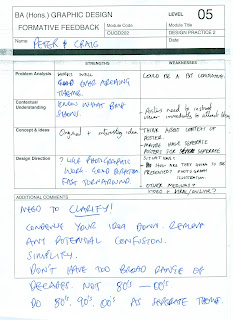 BA (Hons.) GRAPHIC DESIGN
LEVEL 05
FORMATIVE FEEDBACK
Module Code
OUGD202
Module Title
DESIGN PRACTICE 2
Name
PETER & CRAIG
Date
STRENGTHS
WEAKNESSES
Problem Analysis
WORKS WELL
GOOD OVER ARCHING
THEME.
COULD BE A BIT CONFUSING.
Contextual
Understanding
KNOW WHAT BAND
Posters need to instantly
viewer immediately to attract them
Concept & Ideas
Original + interesting idea
THINK ABOUT CONTEXT OF
POSTER.
MAYBE HAVE SEPERATE
POSTERS FOR SEPERATE
Design Direction
? LIKE PHOTOGRAPHIC
WORK. GOOD
FAST TURNAROUND.
HOW ARE THEY GOING TO BE
PRESENTED? PHOTOGRAPH
ILLUSTRATION.
OTHER MEDIUMS?
VIDEO + VIRAL/ONLINE?
ADDITIONAL COMMENTS
NEED TO CLARIFY!
CONDENSE YOUR IDEA DOWN.
ANY POTENTIAL CONFUSION.
SIMPLIFY.
DON'T HAVE TOO BROAD RANGE OF
DECADES. NOT 80'S — 00'S
DO 80'S, 90'S, 00'S AS SEPERATE THEME.